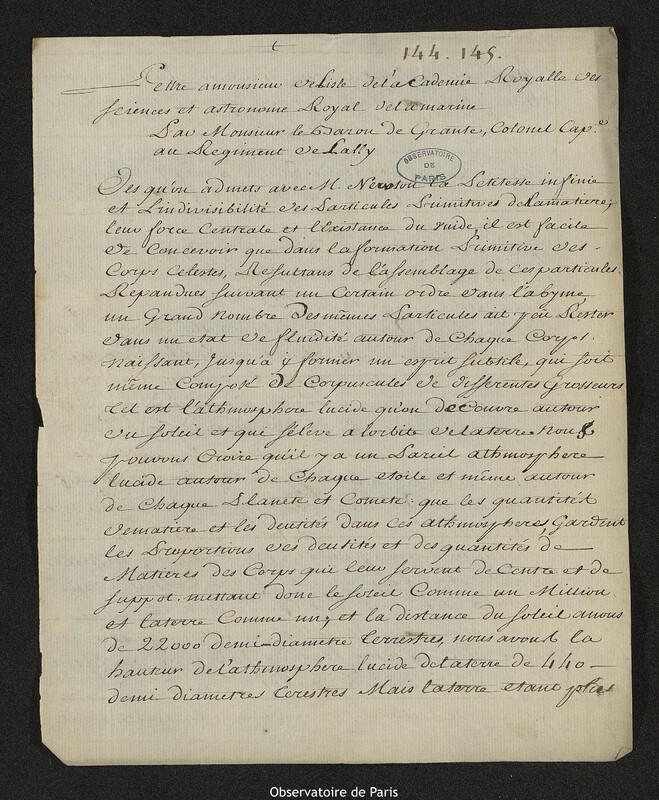 144. 145.
Lettre a monsieur de Liste de l'academie Royalle des
sciences et astronome Royal de la marine
Par Monsieur le Baron de Grante, Colonel Cap.e
au Regiment de Lally
OBSERVATOIRE DE PARIS
Des qu'on admets avec M. Newton la Petitesse infinie
et L'indivisibilité des Particules Primitives de la matiere,
leur force Centrale et L'existance du vuide, il est facile
de Concevoir que dans la formation Primitive des
Corps Celestes, Resultans de l'assemblage de ces particules
Repandues suivant un Certain ordre dans l'abyme
un Grand Nombre des mêmes Particules ait peu Rester
dans un etat de fluidité autour de Chaque Corps
Naissant, Jusqu'a y former un esprit subtile, qui soit
même Composé de Corpuscules de differentes Grosseurs
tel est l'athmosphere lucide qu'on decouvre autour
du soleil et qui s'éleve a l'orbite de la terre Nous
pouvons Croire qu'il y a un Pareil athmosphere
lucide autour de Chaque etoile et même autour
de Chaque Planete et Comete. que les quantités
de matiere et les densités dans ces athmospheres Gardent
les Proportions des densités et des quantités de
Matieres des Corps qui leur servent de Centre et de
suppot. mettant donc le soleil Comme un Million
et la terre Comme un, et la distance du soleil a nous
de 22000 demi-diametre terrestres, nous avons la
hauteur de l'athmosphere lucide de la terre de 440
demi diametres terestres Mais la terre etant plus
Observatoire de Paris